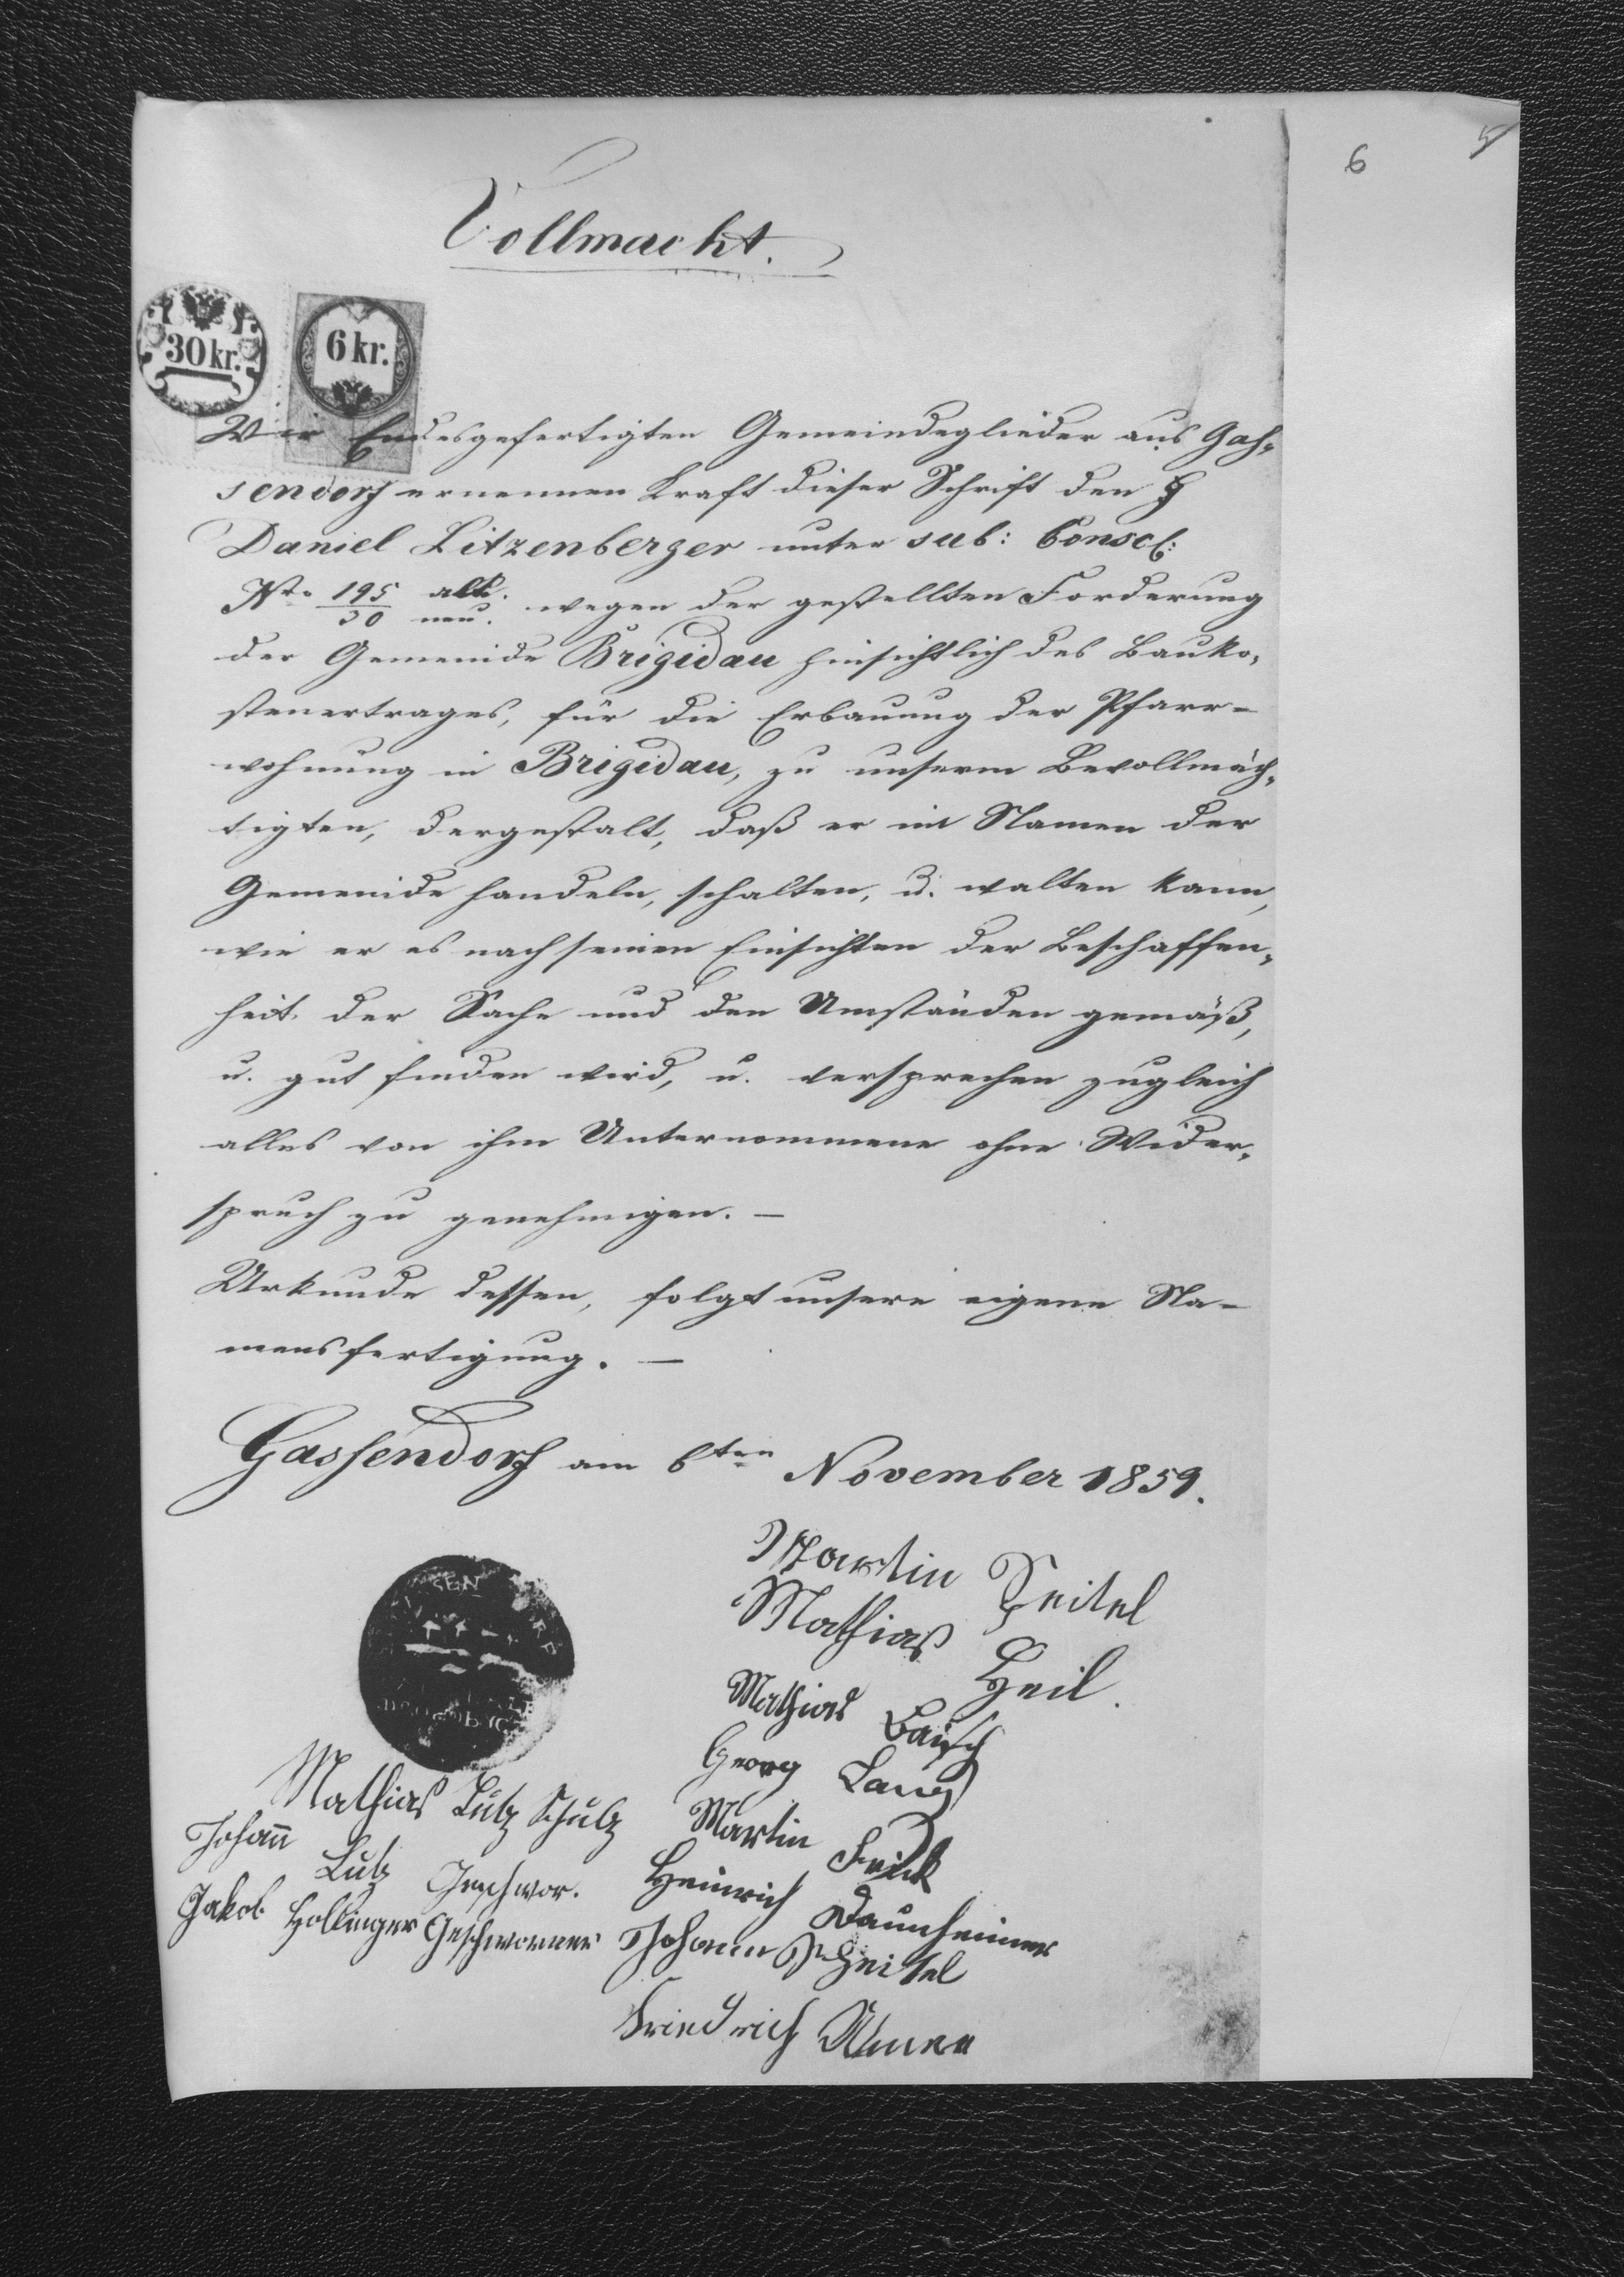 6
Vollmacht.
30 kr.
6 kr.
Wir Endesgefertigten Gemeindeglieder aus Gas-
sendorf ernennen Kraft dieser Schrift den H
Daniel Litzenberger unter sub: Conscl:
Nto 195/30 alt./neu. wegen der gestellten Forderung
der Gemeinde Brigidau hinsichtlich des Bauko-
stenertrages, für die Erbauung der Pfarr-
wohnung in Brigidau, zu unserm Bevollmäch-
tigten, dergestalt, daß er im Namen der
Gemeinde handeln, schalten, u. walten kann,
wie er es nach seinen Einsichten der Beschaffen-
heit der Sache und den Umständen gemäß,
u. gut finden wird, u. versprechen zugleich
alles von ihm Unternommene ohne Wider-
spruch zu genehmigen. —
Urkunde dessen, folgt unsere eigene Na-
mensfertigung. —
Gassendorf am 6ten November 1859.
Martin Seitel
Mathias Heil.
Mathias Bausch
Georg Lang
Mathias Lutz Schulz
Martin Frick
Johann Lutz Geschwor.
Heinrich Daumheimer
Jakob Hollinger Geschworner
Johann Scheitel
Friedrich